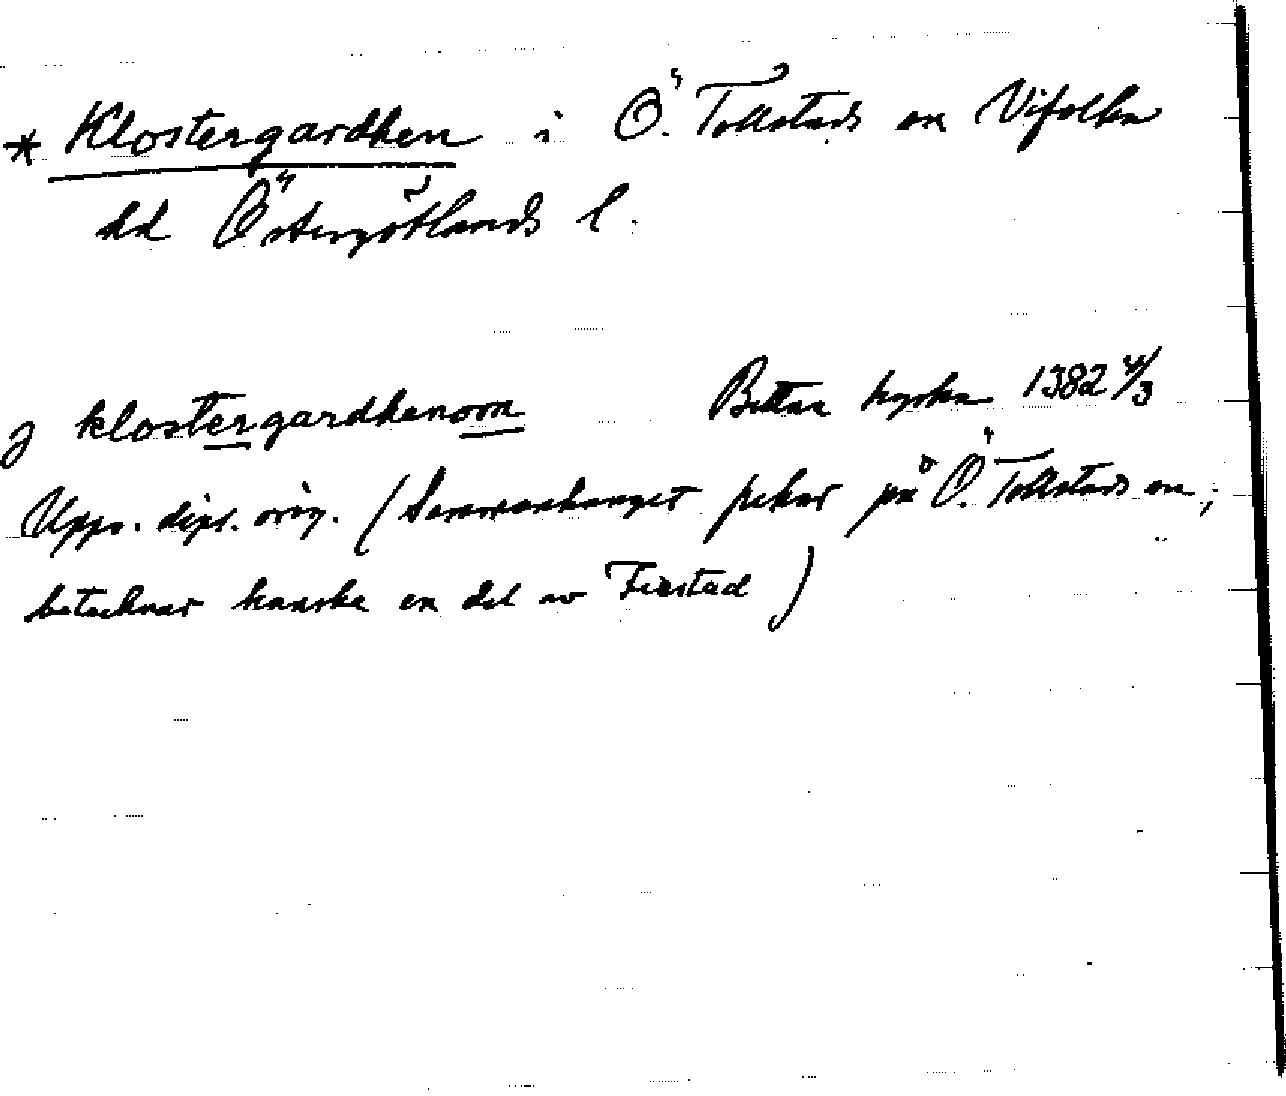 * Klostergardhen i Ö. Tollstads sn Vifolka
hd Östergötlands l.
j klostergardhenom Bettna kyrka 1382 4/3
Upps. dipl. orig. (Sammanhanget pekar på Ö. Tollstads sn,
betecknar kanske en del av Fierstad)